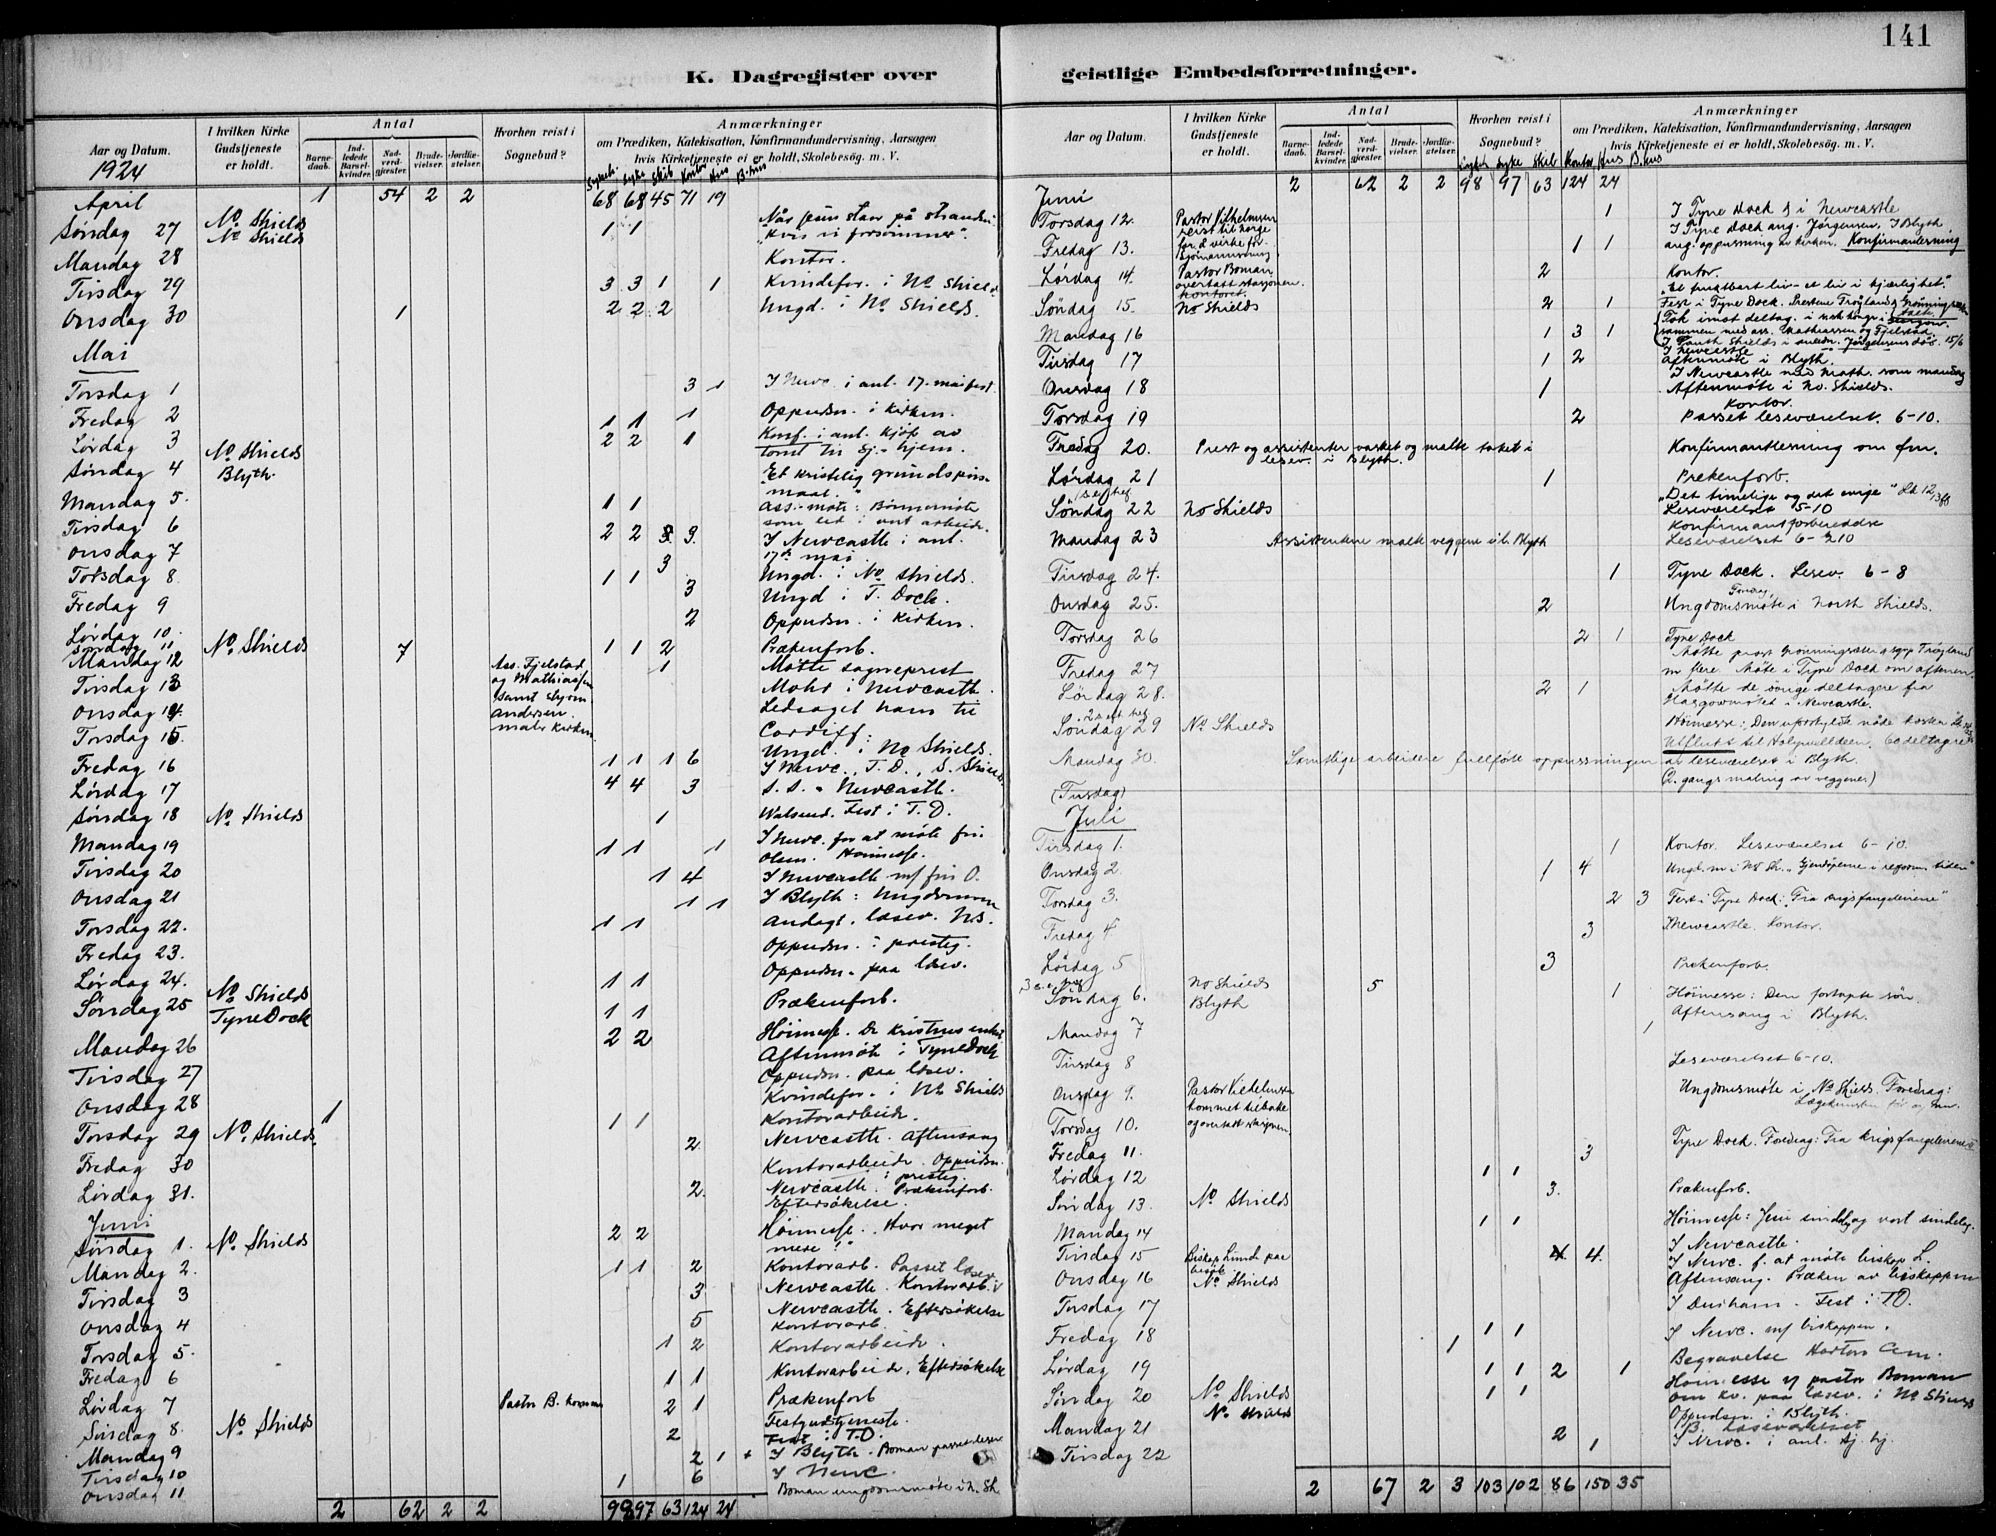 141
K. Dagregister over
geistlige Embedsforretninger.
Aar og Datum.
1924
I hvilken Kirke Gudstjeneste er holdt.
Antal
Barnedaab.
Indledede Barselkvinder.
Nadverdgjester.
Brudevielser.
Jordfæstelser.
Hvorhen reist i Sognebud?
Anmærkninger
om Prædiken, Katekisation, Konfirmandundervisning, Aarsagen
hvis Kirketjeneste ei er holdt, Skolebesøg. m. V.
Sykeh. Syke Skib Kontor Hus B.hus
April 1 54 2 2 68 68 45 71 19
Søndag 27 No Shields 1 1 Når Jesus står på stranden
No Shields "Hvis vi forsømmer".
Mandag 28 Kontor.
Tirsdag 29 3 3 1 1 Kvindefor. i No Shields
Onsdag 30 1 2 2 2 Ungd. i No Shields.
Mai
Torsdag 1 3 1 I Newc. i anl. 17. mai fest.
Fredag 2 1 1 1 Oppudsn. i kirken.
Lørdag 3 2 2 1 Konf. i anl. kjøp av
No Shields tomt til sj.-hjem.
Søndag 4 Blyth. Et kristelig grundspørs-
maal."
Mandag 5. 1 1 Ass.-møte: Bønnemøte
som led i vort arbeide.
Tirsdag 6 2 2 9. I Newcastle i anl.
Onsdag 7 3 17de mai
Torsdag 8. 1 1 Ungd. i No Shields.
Fredag 9 3 Ungd i T. Dock.
Lørdag 10. 2 Oppudsn. i kirken.
Søndag 11 No. Shields 7 1 1 2 Prækenforb.
Mandag 12 Ass. Fjelstad 1 Møtte sogneprest
Tirsdag 13 og Mathiassen Mohr i Newcastle.
Onsdag 14. samt sjøm. Ledsaget ham til
Torsdag 15. Andersen maler kirken Cardiff.
Fredag 16 1 1 1 6 Ungd. i No Shields.
I Newc., T. D., S. Shields.
Lørdag 17 4 4 3 S. S. " Newcastle.
Søndag 18 No. Shields 1 Walsend. Fest i T. D.
Mandag 19 1 1 1 I Newc. for at møte frk.
Olsen. Høimesse.
Tirsdag 20 1 4 I Newcastle m/ frk O.
Onsdag 21 1 1 I Blyth:
Torsdag 22. 1 1 Andagt. læsev. NS.
Fredag 23. Oppudsn. i prestg.
Lørdag 24. 1 1 Oppudsn. paa læsev.
Søndag 25 No Shields 1 1 Prækenforb.
Tyne Dock
Mandag 26 2 2 Høimesse. De kristnes enhet
Aftenmøte i Tyne Dock
Tirsdag 27 Oppudsn. paa læsev.
Onsdag 28 1 Kvindefor. i No Shields
Torsdag 29 No. Shields. 1 1 Kontorarbeide.
Fredag 30 2. Newcastle. Aftensang
Kontorarbeide. Oppudsn. i prestg.
Lørdag 31. 2. Newcastle. Prækenforb.
Eftersøkelse.
Juni
Søndag 1. No. Shields 2 2 Høimesse. "Hvor meget
mere!"
Mandag 2. 1 1 2 Kontorarb. Passet læsev.
Tirsdag 3 3 Newcastle. Kontorarb.
Onsdag 4 5 Newcastle. Eftersøkelse
Kontorarb.
Torsdag 5. 1 2 Kontorarbeide.
Fredag 6 1 1 Kontorarbeide. Eftersøkelse
Lørdag 7 Pastor B. kommer 2 1 Prækenforb
Søndag 8. No Shields 2 Festgudstjeneste.
Fest i T.D.
Mandag 9 2 1 I Blyth. Boman passet læsev
Tirsdag 10 1 6 I Newc.
Onsdag 11 Boman ungdomsmøte i N. Sh.
2 62 2 2 98 97 63 124 24
Aar og Datum.
I hvilken Kirke Gudstjeneste er holdt.
Antal
Barnedaab.
Indledede Barselkvinder.
Nadverdgjester.
Brudevielser.
Jordfæstelser.
Hvorhen reist i Sognebud?
Anmærkninger
om Prædiken, Katekisation, Konfirmandundervisning, Aarsagen
hvis Kirketjeneste ei er holdt, Skolebesøg. m. V.
Sykeh Syke Skib Kontor Hus B.hus
Juni 2 62 2 2 98 97 63 124 24
Torsdag 12. Pastor Vilhelmsen reist til Norge 1 I Tyne Dock & i Newcastle
Fredag 13. for å virke for Sjømannsmisj. 1 1 I Tyne Dock ang. Jørgensen. I Blyth
ang. oppussning av kirken. Konfirmantlesning
Lørdag 14. Pastor Boman overtatt stasjonen. 2 Kontor.
"Et fruktbart liv - et liv i kjærlighet."
Søndag 15. No Shields 2 1 Fest i Tyne Dock. Prestene Trøyland & Grønningsæter
Mandag 16 1 3 1 Tok imot deltag. i
sammen med ass. Mathiassen og Fjelstad
I South Shields i anledn. Jørgensens død. 15/6
Tirsdag 17 1 2 I Newcastle
Aftenmøte i Blyth.
Onsdag 18 1 I Newcastle med Math. som mandag
Aftenmøte i No. Shields.
Torsdag 19 2 Kontor.
Passet leseværelset. 6-10.
Fredag 20. Prest og assistenter vasket og malte taket i lesev. i Blyth. Konfirmantlesning om fm.
Lørdag 21 1 Prekenforb.
Søndag 22 No Shields "Det timelige og det evige" Lk 12, 13 ff
Leseværelset 5-10
Mandag 23 Assistentene malte veggene i l. Blyth Konfirmantforberedelse
Leseværelset 6-10
Tirsdag 24. 1 Tyne Dock. Lesev. 6-8
Onsdag 25. 2 Ungdomsmøte i North Shields.
Torsdag 26 2 1 Tyne Dock
Fredag 27 Møtte prost Grønningsæter & sgpr Trøyland
m. flere. Møte i Tyne Dock om aftenen.
Lørdag 28. 2 1 Møtte de øvrige deltagere fra
Glasgowmøtet i Newcastle.
Søndag 29 No Shields Høimesse: Den uforskyldte nåde
Utflukt til Holywelldeen. 60 deltagere
Mandag 30. Samtlige arbeidere fullførte oppussningen av leseværelset i Blyth.
(2. gangs maling av veggene)
(Tirsdag)
Juli
Tirsdag 1. 1 Kontor. Leseværelset 6-10.
Onsdag 2. 1 4 Ungd.m i No Sh. "Gjendøperne i reform. tiden"
Torsdag 3. 2 3 Fest i Tyne Dock: "Fra krigsfangeleirene"
Fredag 4 3 I Newcastle. Kontor.
Lørdag 5 3 Prekenforb.
Søndag 6. No Shields 5 1 Høimesse: Den fortapte søn.
Blyth Aftensang i Blyth.
Mandag 7 1
Tirsdag 8 Leseværelset 6-10.
Onsdag 9. Pastor Vilhelmsen Ungdomsmøte i No Shields. Foredrag:
Lægekunsten før og nu.
Torsdag 10. kommet tilbake og overtatt stasjonen.
Fredag 11. 3 Tyne Dock. Foredrag: Fra krigsfangeleirene
Lørdag 12 1 1
Søndag 13. No Shields 3. Prækenforb.
Mandag 14 1 1 Høimesse: Jesu sindelag vort sindelag.
Tirsdag 15 Biskop Lunde paa besøk 4. I Newcastle.
Onsdag 16 No. Shields I Newc. f. at møte biskop L.
Aftensang. Præken av biskoppen
Torsdag 17 I Durham. Fest i TD.
Fredag 18 1 1 1 I Newc. m/ biskoppen.
Lørdag 19 1 1 2 1 Begravelse
Søndag 20 No Shields 1 1 Høimesse v/ pastor Boman
No Shields om kv. paa læsev. i No Shields
Mandag 21 2 Oppudsn. i Blyth.
B. Læseværelset
Tirsdag 22 1 I Newc. i anl. sj. hj.
2 67 2 3 103 102 86 150 35